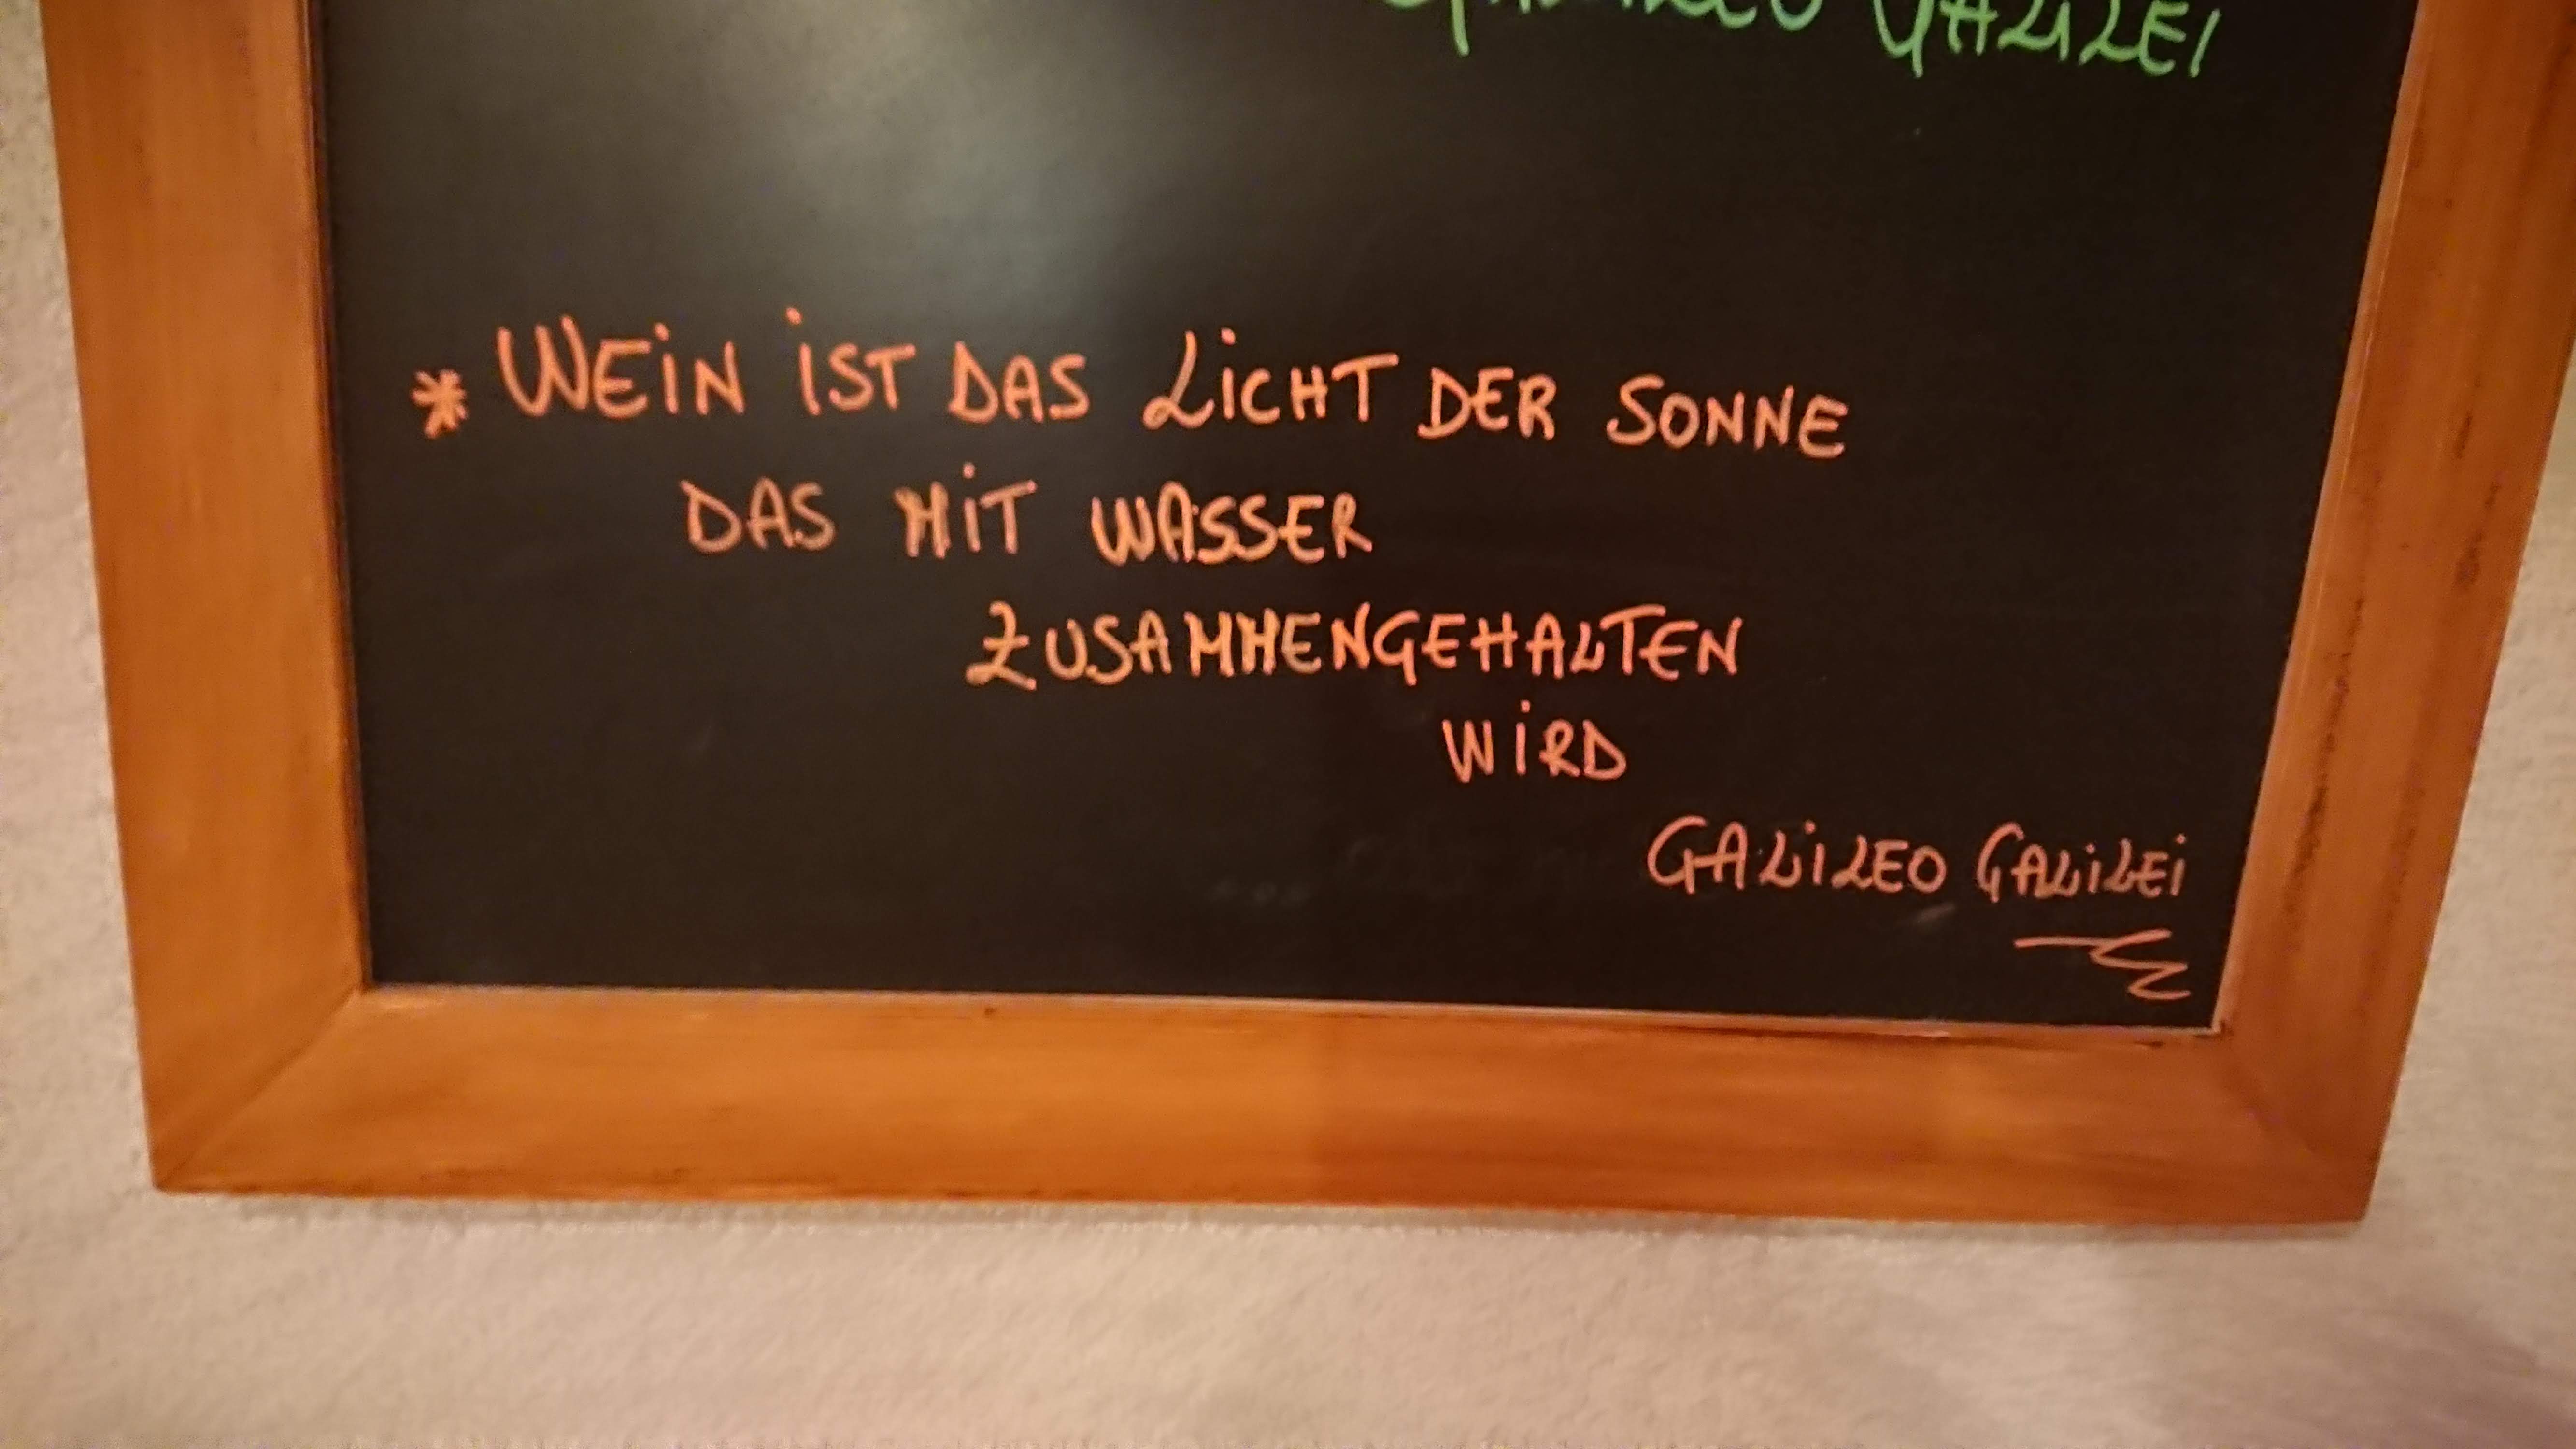 GALILEO GALILEI
* WEIN IST DAS LICHT DER SONNE
DAS MIT WASSER
ZUSAMMENGEHALTEN
WIRD
GALILEO GALILEI